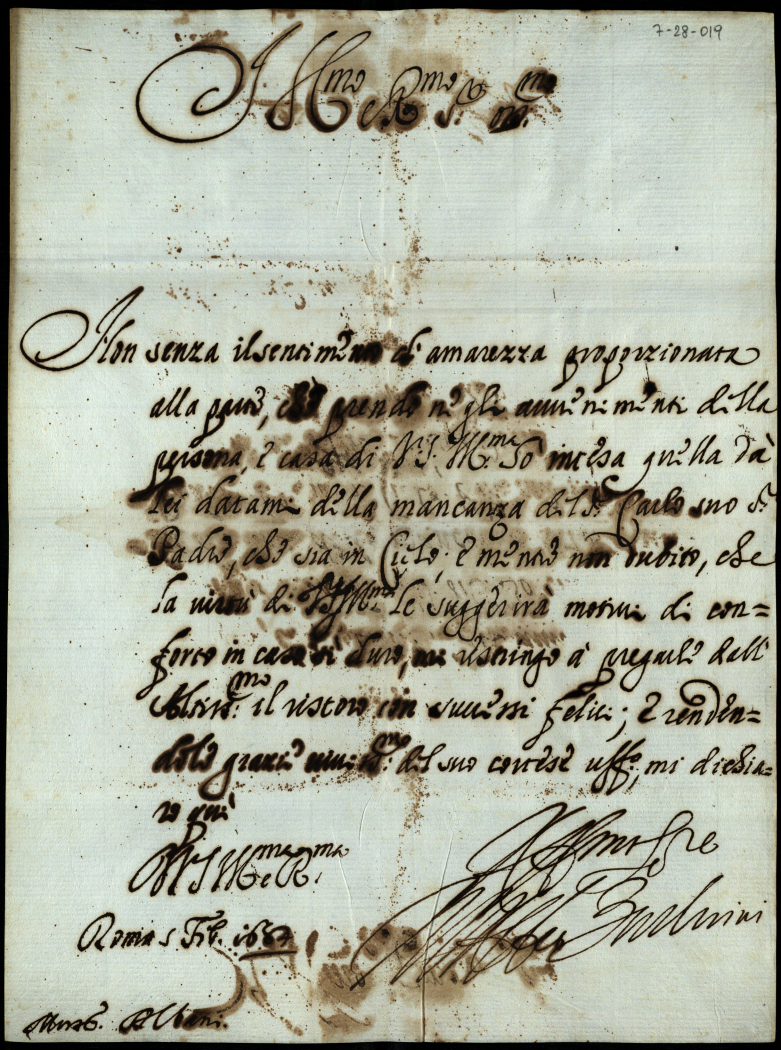 7-28-019
Ill.mo e R.mo S.r oss.mo
Non senza il sentim.to di amarezza proporzionata
alla parte, che prendo ne gli avvenimenti della
persona, e casa di V.S. Ill.ma hò intesa quella da
lei datami della mancanza del S.r Carlo suo S.r
Padre, che sia in Cielo; e mentre non dubito, che
la virtù di V.S. Ill.ma le suggerirà motivi di con=
forto in caso sì duro, mi ristringo à pregarle dall'
Altis.mo il ristoro con successi felici; e renden=
dole grazie del suo cortese uff.o, mi dichia=
ro qui
V.S. Ill.ma e R.ma
Roma 5 Feb. 1682
Albani.